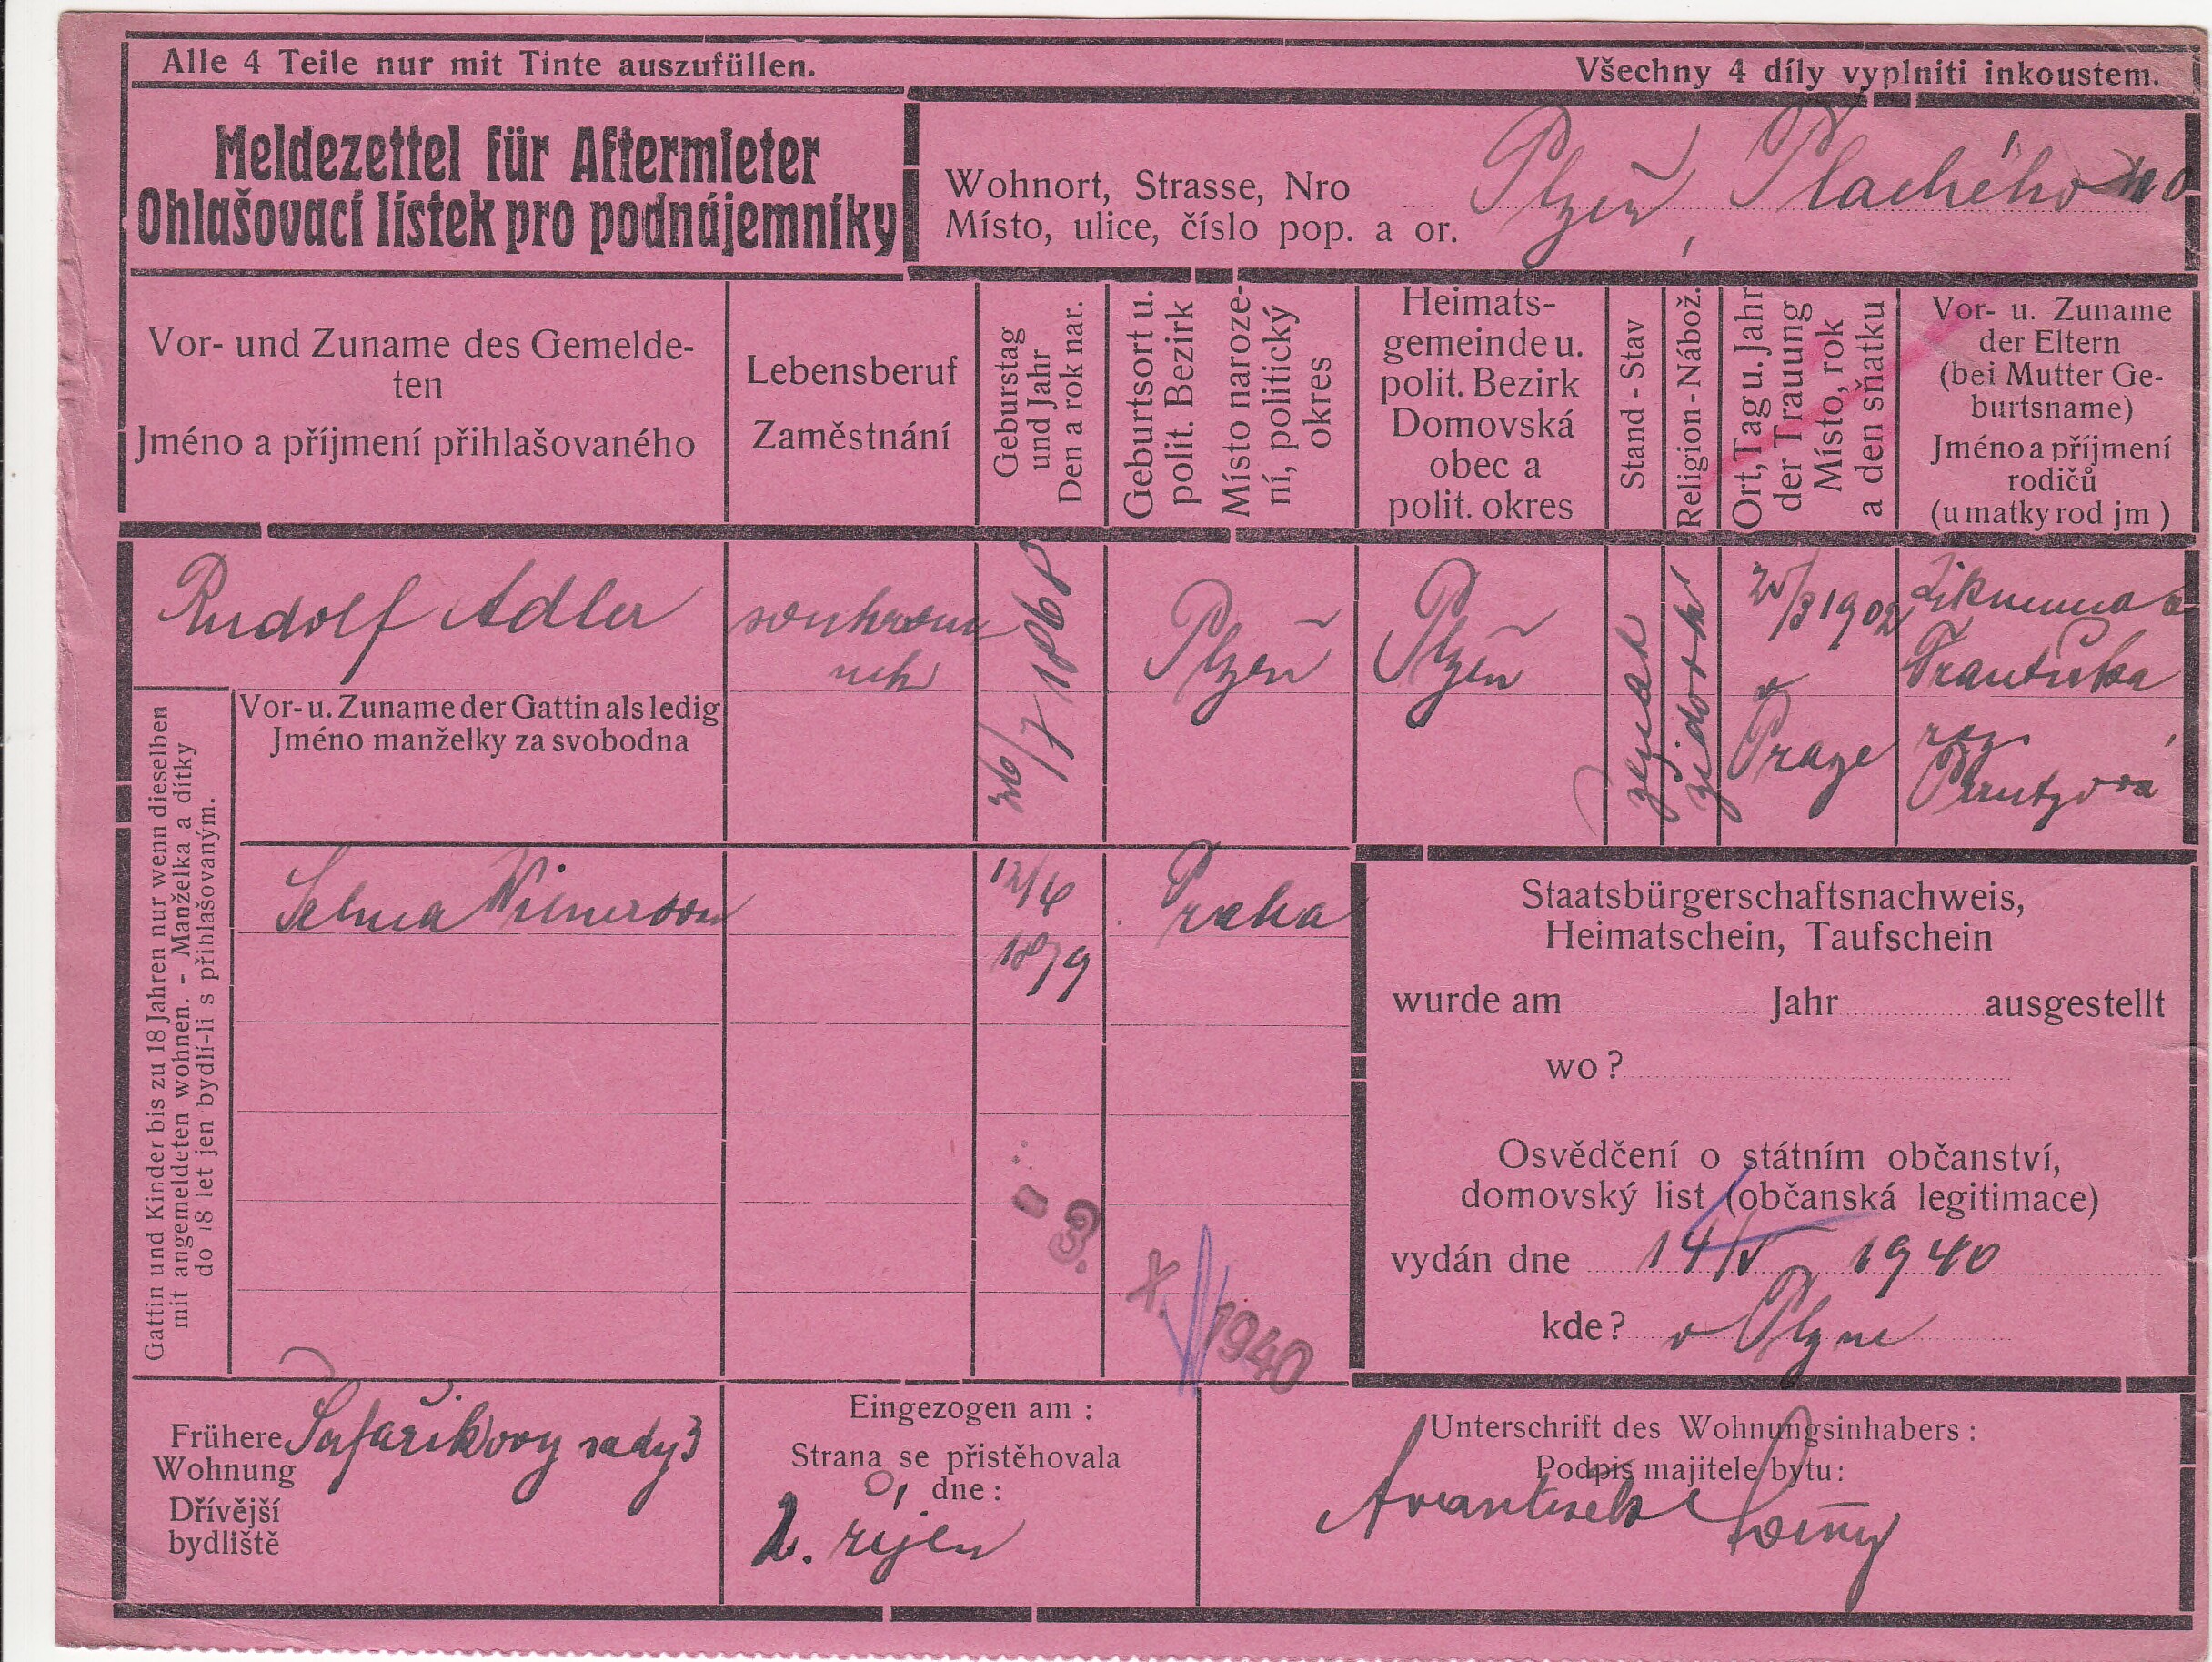 Alle 4 Teile nur mit Tinte auszufüllen.
Všechny 4 díly vyplniti inkoustem.
Meldezettel für Aftermieter
Ohlašovací lístek pro podnájemníky
Wohnort, Strasse, Nro
Místo, ulice, číslo pop. a or.
Plzeň, Plachého
Vor- und Zuname des Gemelde-
ten
Jméno a příjmení přihlašovaného
Lebensberuf
Zaměstnání
Geburstag
und Jahr
Den a rok nar.
Geburtsort u.
polit. Bezirk
Místo naroze-
ní, politický
okres
Heimats-
gemeinde u.
polit. Bezirk
Domovská
obec a
polit. okres
Stand - Stav
Religion - Nábož.
Ort, Tag u. Jahr
der Trauung
Místo, rok
a den sňatku
Vor- u. Zuname
der Eltern
(bei Mutter Ge-
burtsname)
Jméno a příjmení
rodičů
(u matky rod jm )
Rudolf Adler
26/7 1868
Plzeň
Plzeň
20/3 1902
v
Praze
Františka
roz.
Vor- u. Zuname der Gattin als ledig
Jméno manželky za svobodna
Gattin und Kinder bis zu 18 Jahren nur wenn dieselben
mit angemeldeten wohnen. - Manželka a dítky
do 18 let jen bydlí-li s přihlašovaným.
Selma
12/6
1879
Praha
Staatsbürgerschaftsnachweis,
Heimatschein, Taufschein
wurde am Jahr ausgestellt
wo ?
Osvědčení o státním občanství,
domovský list (občanská legitimace)
vydán dne 14/V 1940
kde? v Plzni
- 3. X. 1940
Frühere
Wohnung
Dřívější
bydliště
Šafaříkovy sady 3
Eingezogen am :
Strana se přistěhovala
dne :
2. říjen
Unterschrift des Wohnungsinhabers :
Podpis majitele bytu :
František